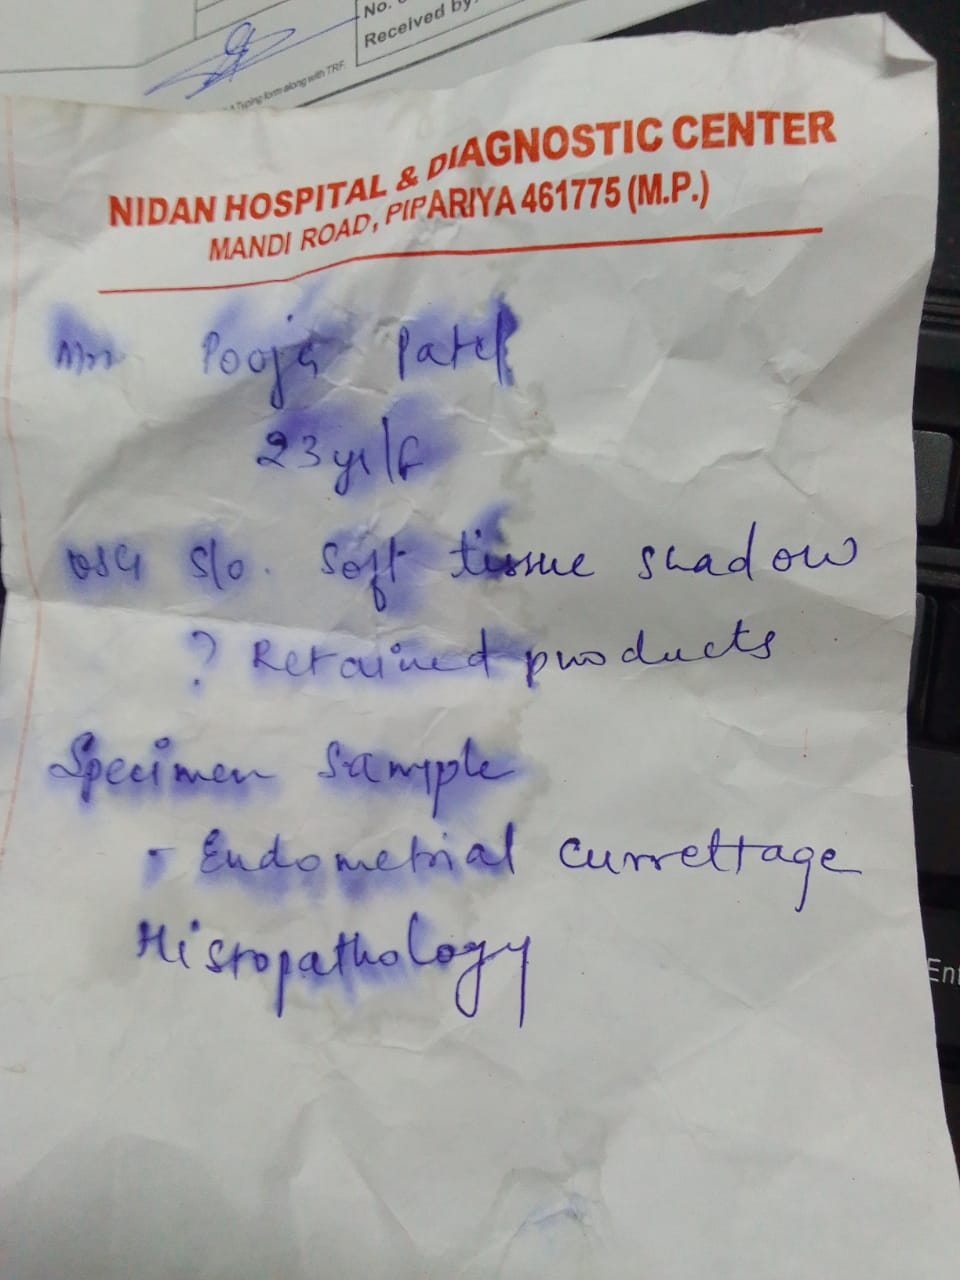 No.
Received by:
Typing form along with TRF.
NIDAN HOSPITAL & DIAGNOSTIC CENTER
MANDI ROAD, PIPARIYA 461775 (M.P.)
Mrs Pooja Patel
23 yr/F
USG S/o. Soft tissue shadow
? Retained products
Specimen Sample
- Endometrial currettage
Histopathology
Ent